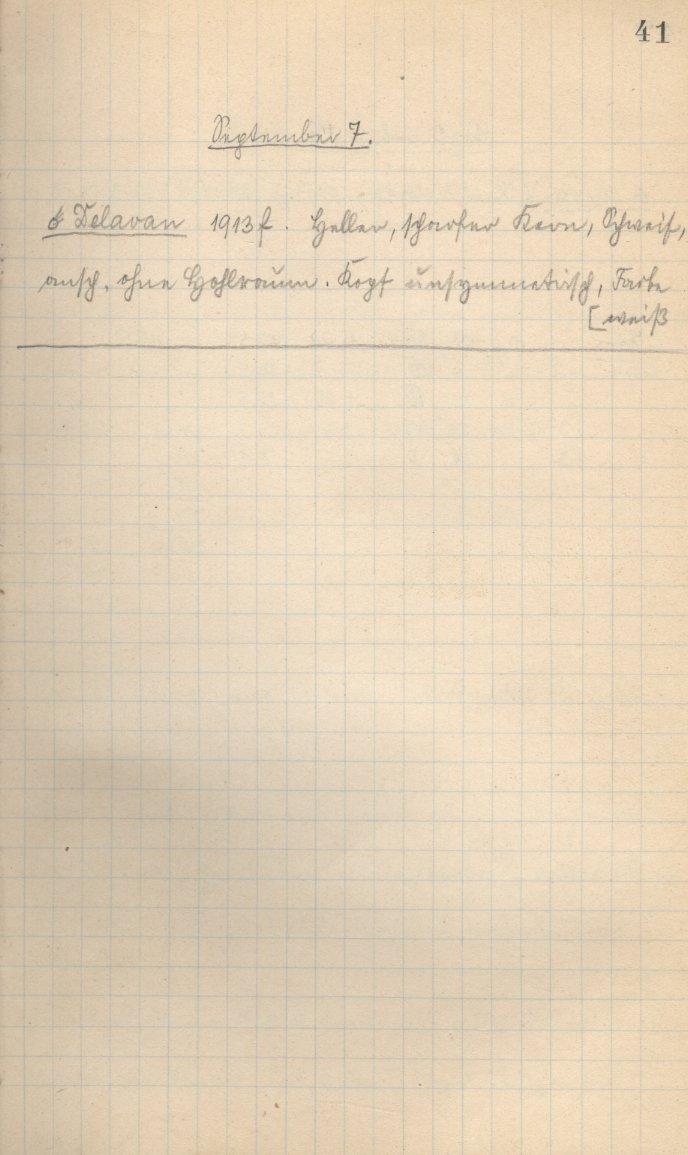 41
September 7.
☄ Delavan 1913 f. Heller, scharfer Kern, Schweif,
ansch. ohne Hohlraum. Kopf unsymmetrisch, Farbe
[weiß